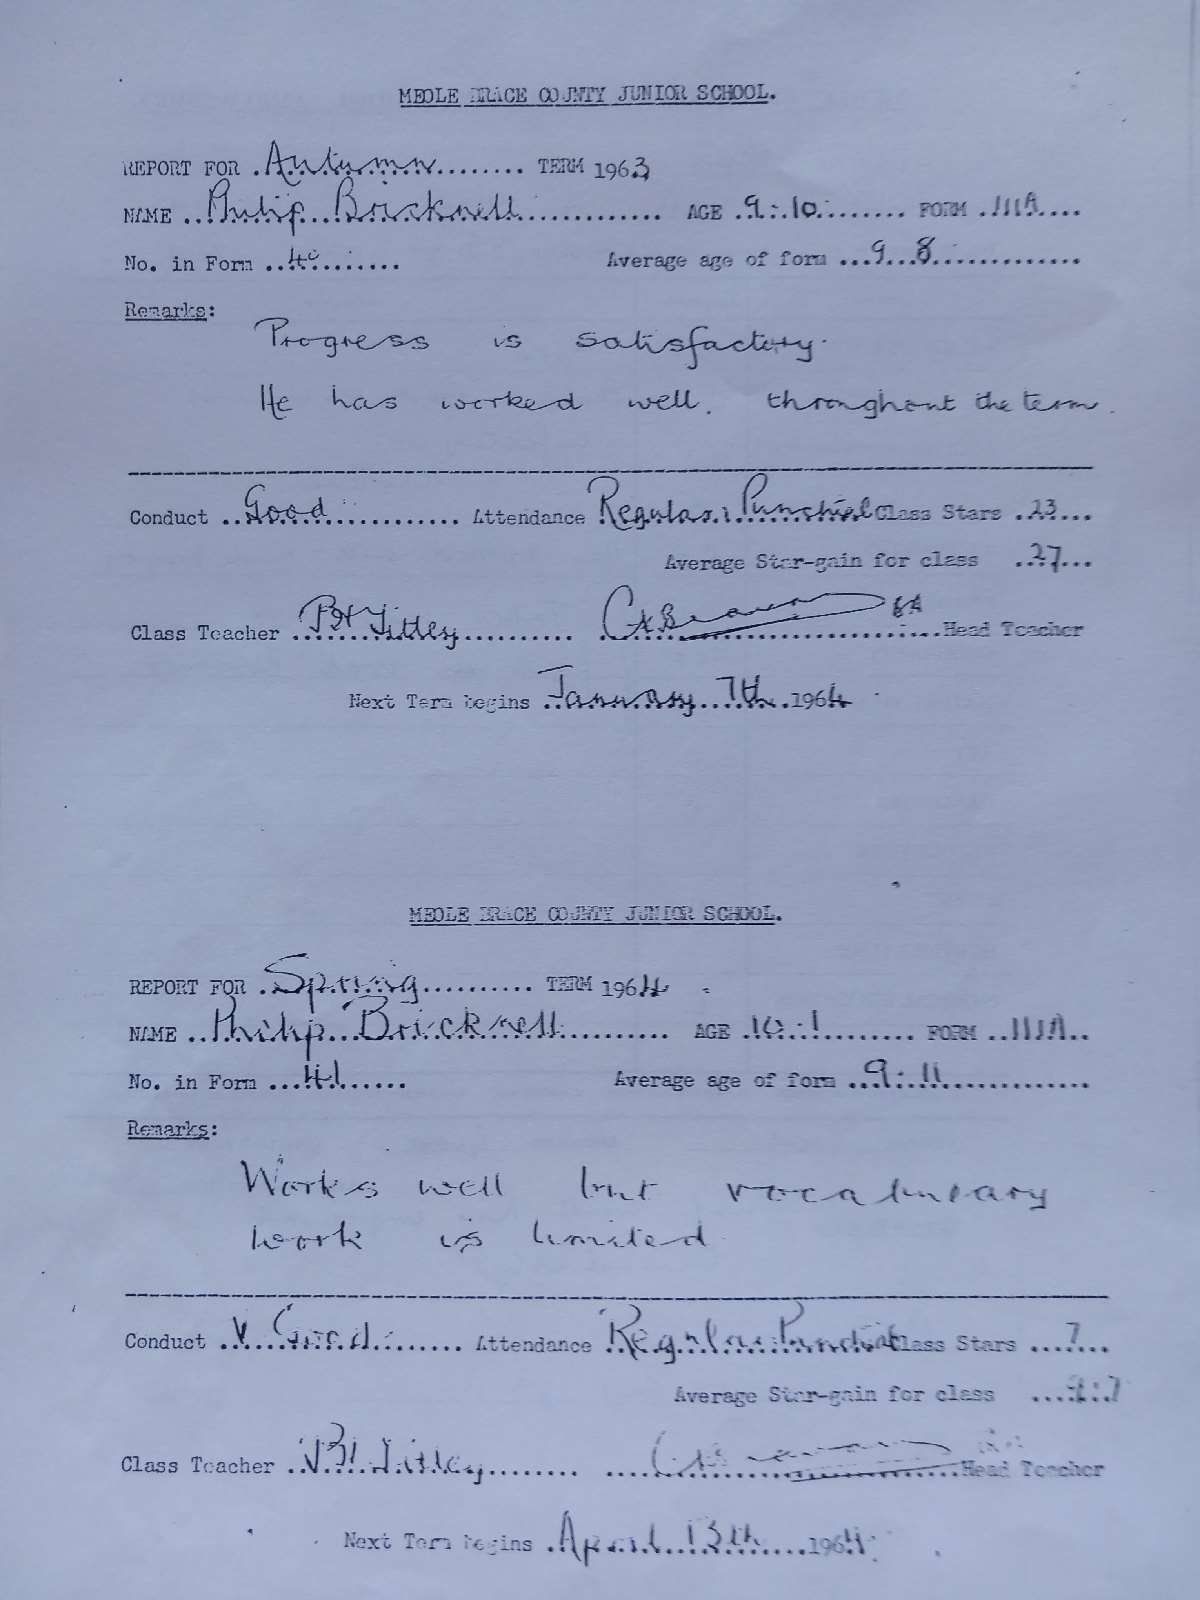 MEOLE BRACE COUNTY JUNIOR SCHOOL.
REPORT FOR Autumn TERM 1963
NAME Philip Bricknell AGE 9.10 FORM IIIA
No. in Form 40 Average age of form 9 8
Remarks:
Progress is satisfactory.
He has worked well throughout the term.
Conduct Good Attendance Regular: Punctual Class Stars 23
Average Star-gain for class 27
Class Teacher Titley Head Teacher
Next Term begins January 7th 1964
MEOLE BRACE COUNTY JUNIOR SCHOOL.
REPORT FOR Spring TERM 1964
NAME Philip Bricknell AGE 10.1 FORM IIIA
No. in Form 41 Average age of form 9.11
Remarks:
Works well but vocabulary
work is limited
Conduct V. Good Attendance Regular Punctual Class Stars 7
Average Star-gain for class
Class Teacher Titley Head Teacher
Next Term begins April 13th 1964